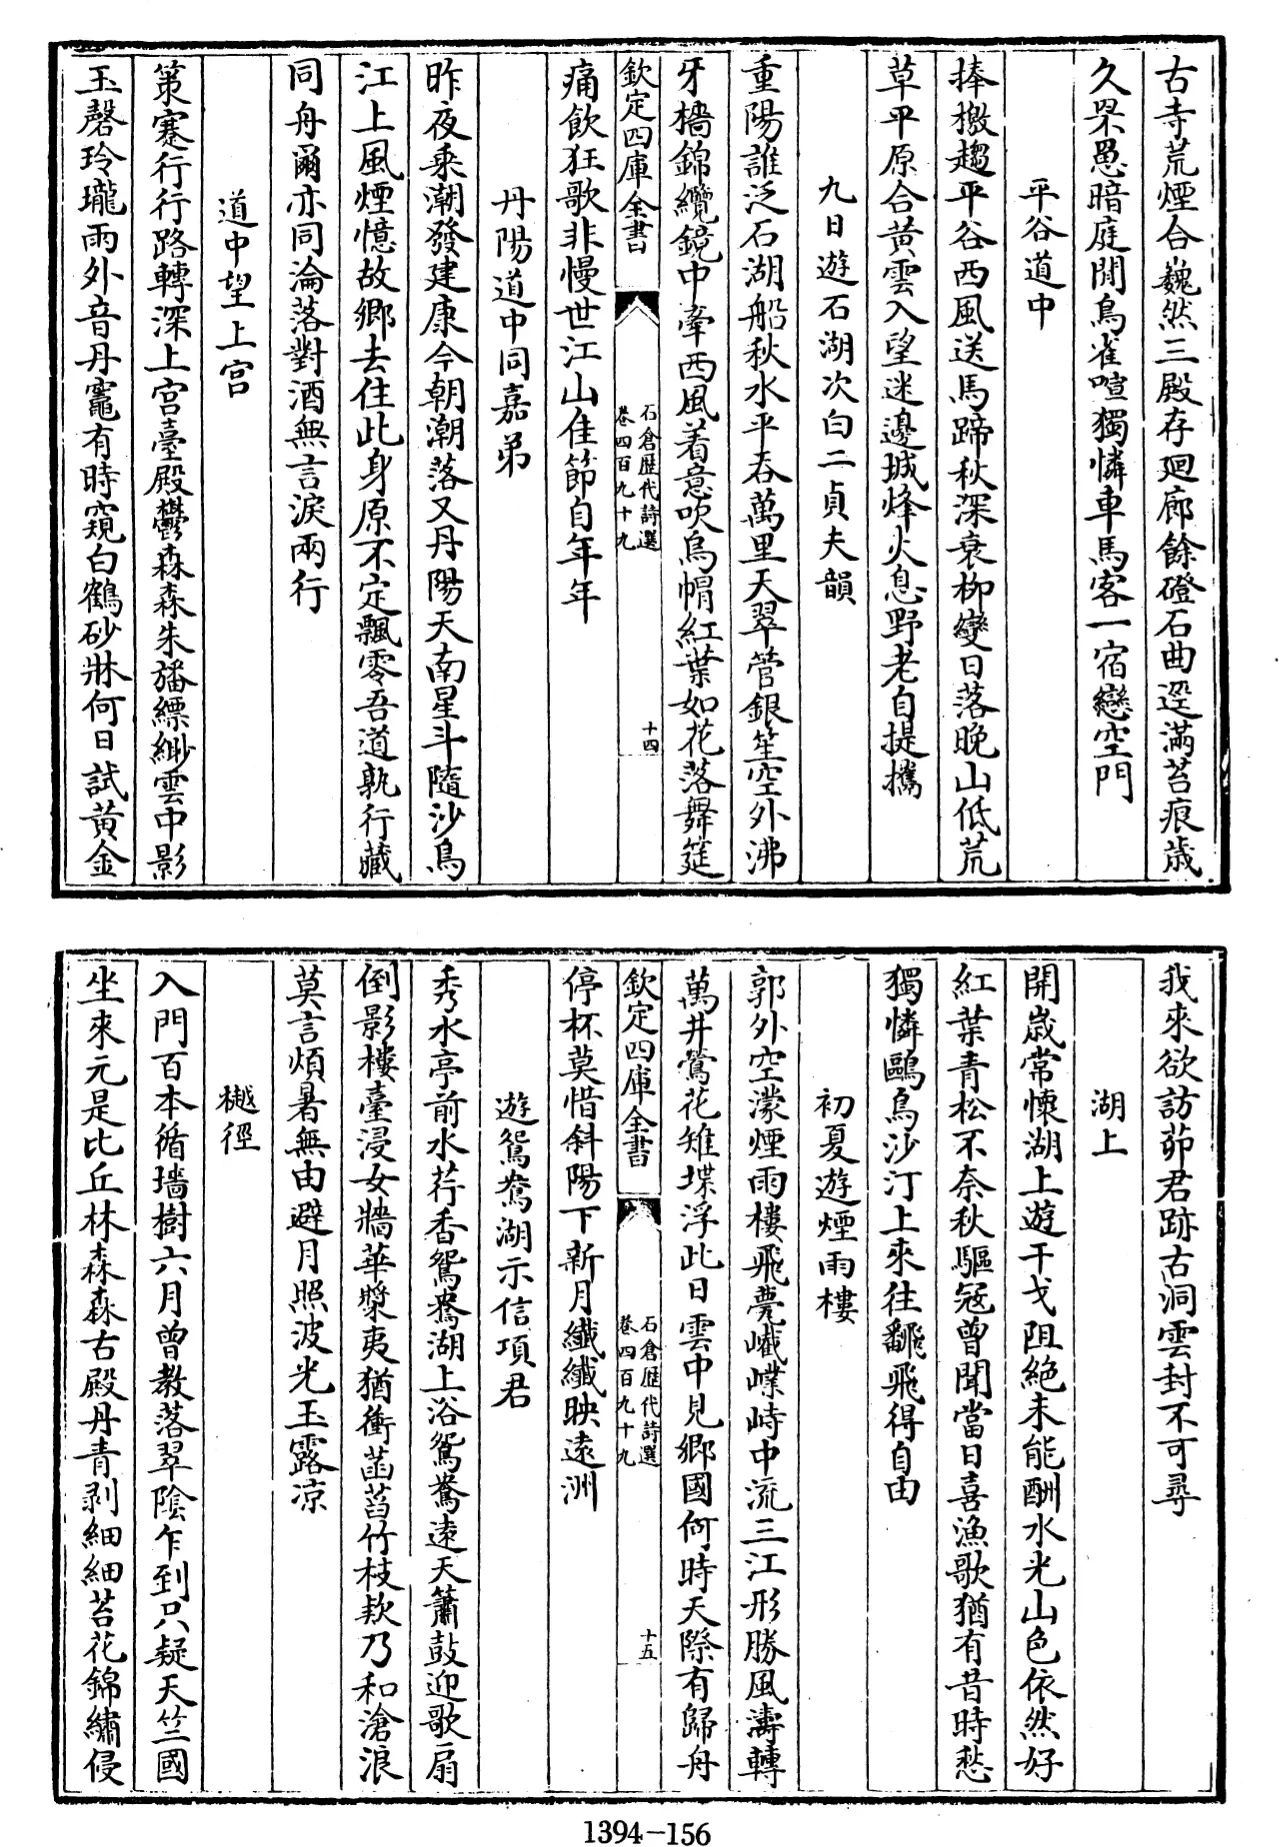 古寺荒煙合巍然三殿存廻廊餘磴石曲逕滿苔痕歲
久罘罳暗庭閒鳥雀喧獨憐車馬客一宿戀空門
平谷道中
捧檄趨平谷西風送馬蹄秋深衰柳變日落晚山低荒
草平原合黄雲入望迷邊城烽火息野老自提攜
九日遊石湖次白二貞夫韻
重陽誰泛石湖船秋水平吞萬里天翠管銀笙空外沸
牙檣錦纜鏡中牽西風着意吹烏帽紅葉如花落舞筵
欽定四庫全書
石倉歷代詩選
卷四百九十九
十四
痛飲狂歌非慢世江山佳節自年年
丹陽道中同嘉弟
昨夜乘潮發建康今朝潮落又丹陽天南星斗隨沙鳥
江上風煙憶故鄉去住此身原不定飄零吾道孰行藏
同舟爾亦同淪落對酒無言淚兩行
道中望上宫
策蹇行行路轉深上宫臺殿鬱森森朱旛縹緲雲中影
玉磬玲瓏雨外音丹竈有時窺白鶴砂牀何日試黄金
我來欲訪茆君跡古洞雲封不可尋
湖上
開歲常懷湖上遊干戈阻絶未能酬水光山色依然好
紅葉青松不奈秋驅冦曾聞當日喜漁歌猶有昔時愁
獨憐鷗鳥沙汀上來往翻飛得自由
初夏遊煙雨樓
郭外空濛煙雨樓飛甍巀嶫峙中流三江形勝風濤轉
萬井鶯花雉堞浮此日雲中見鄉國何時天際有歸舟
欽定四庫全書
石倉歷代詩選
卷四百九十九
十五
停杯莫惜斜陽下新月纖纖映遠洲
遊鴛鴦湖示信項君
秀水亭前水荇香鴛鴦湖上浴鴛鴦遠天簫鼓迎歌扇
倒影樓臺浸女牆華槳夷猶衝菡萏竹枝欵乃和滄浪
莫言煩暑無由避月照波光玉露凉
樾徑
入門百本循墻樹六月曾教落翠陰乍到只疑天竺國
坐來元是比丘林森森古殿丹青剥細細苔花錦繡侵
1394-156